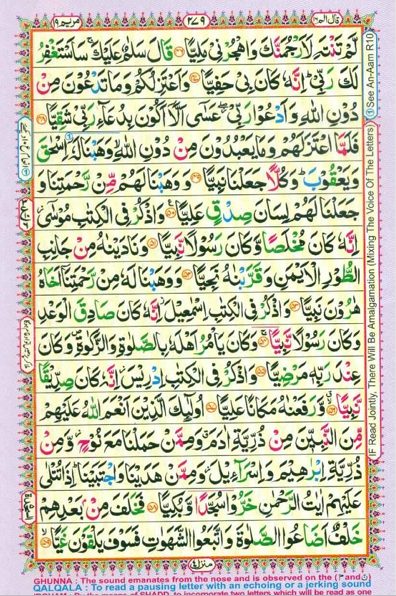 مريم ١٩
٢٤٩
قال الم ١٦
لَّمْ تَنْتَهِ لَاَرْجُمَنَّكَ وَاهْجُرْنِيْ مَلِيًّا ۝٤٦ قَالَ سَلٰمٌ عَلَيْكَ ۚ سَاَسْتَغْفِرُ
لَكَ رَبِّيْ ؕ اِنَّهٗ كَانَ بِيْ حَفِيًّا ۝٤٧ وَاَعْتَزِلُكُمْ وَمَا تَدْعُوْنَ مِنْ
دُوْنِ اللّٰهِ وَاَدْعُوْا رَبِّيْ ۖ عَسٰۤى اَلَّاۤ اَكُوْنَ بِدُعَآءِ رَبِّيْ شَقِيًّا ۝٤٨
فَلَمَّا اعْتَزَلَهُمْ وَمَا يَعْبُدُوْنَ مِنْ دُوْنِ اللّٰهِ ۙ وَهَبْنَا لَهٗۤ اِسْحٰقَ
وَيَعْقُوْبَ ؕ وَكُلًّا جَعَلْنَا نَبِيًّا ۝٤٩ وَوَهَبْنَا لَهُمْ مِّنْ رَّحْمَتِنَا وَ
جَعَلْنَا لَهُمْ لِسَانَ صِدْقٍ عَلِيًّا ۝٥٠ وَاذْكُرْ فِي الْكِتٰبِ مُوْسٰۤى
اِنَّهٗ كَانَ مُخْلَصًا وَّكَانَ رَسُوْلًا نَّبِيًّا ۝٥١ وَنَادَيْنٰهُ مِنْ جَانِبِ
الطُّوْرِ الْاَيْمَنِ وَقَرَّبْنٰهُ نَجِيًّا ۝٥٢ وَوَهَبْنَا لَهٗ مِنْ رَّحْمَتِنَاۤ اَخَاهُ
هٰرُوْنَ نَبِيًّا ۝٥٣ وَاذْكُرْ فِي الْكِتٰبِ اِسْمٰعِيْلَ ؗ اِنَّهٗ كَانَ صَادِقَ الْوَعْدِ
وَكَانَ رَسُوْلًا نَّبِيًّا ۝٥٤ وَكَانَ يَاْمُرُ اَهْلَهٗ بِالصَّلٰوةِ وَالزَّكٰوةِ ۪ وَكَانَ
عِنْدَ رَبِّهٖ مَرْضِيًّا ۝٥٥ وَاذْكُرْ فِي الْكِتٰبِ اِدْرِيْسَ ؗ اِنَّهٗ كَانَ صِدِّيْقًا
نَّبِيًّا ۝٥٦ وَّرَفَعْنٰهُ مَكَانًا عَلِيًّا ۝٥٧ اُولٰٓئِكَ الَّذِيْنَ اَنْعَمَ اللّٰهُ عَلَيْهِمْ
مِّنَ النَّبِيّٖنَ مِنْ ذُرِّيَّةِ اٰدَمَ ۗ وَمِمَّنْ حَمَلْنَا مَعَ نُوْحٍ ؗ وَّمِنْ
ذُرِّيَّةِ اِبْرٰهِيْمَ وَاِسْرَآءِيْلَ ؗ وَمِمَّنْ هَدَيْنَا وَاجْتَبَيْنَا ؕ اِذَا تُتْلٰى
عَلَيْهِمْ اٰيٰتُ الرَّحْمٰنِ خَرُّوْا سُجَّدًا وَّبُكِيًّا ۝٥٨ فَخَلَفَ مِنْۢ بَعْدِهِمْ
خَلْفٌ اَضَاعُوا الصَّلٰوةَ وَاتَّبَعُوا الشَّهَوٰتِ فَسَوْفَ يَلْقَوْنَ غَيًّا ۝٥٩
السجدة
منزل ٤
① See An-Aam R10
IF Read Jointly, There Will Be Amalgamation (Mixing The Voice Of The Letters)
GHUNNA : The sound emanates from the nose and is observed on the (نّ and مّ)
QALQALA : To read a pausing letter with an echoing or a jerking sound